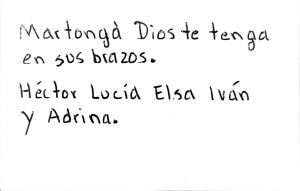 Martongà Dios te tenga
en sus brazos.
Héctor Lucía Elsa Iván
y Adrina.